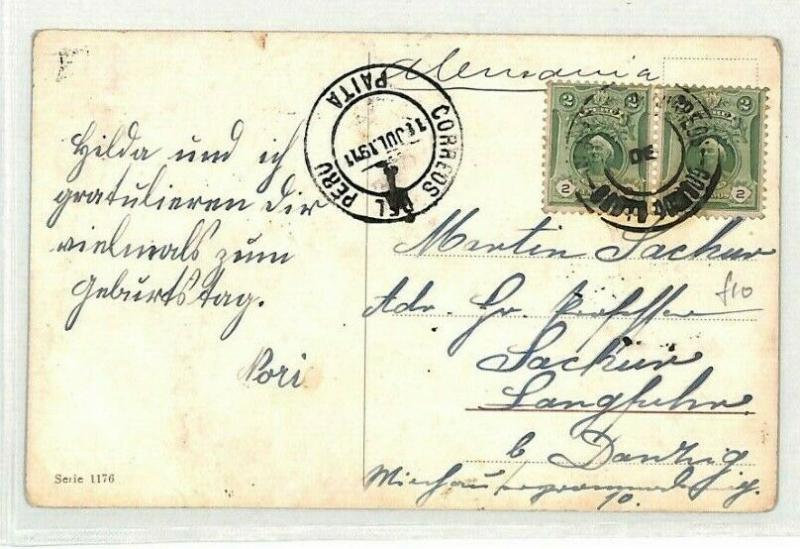 Alemania
CORREOS DEL PERU
PAITA
11 JUL.1911
2 2
2 2
Hilda und ich
gratulieren Dir
vielmals zum
Geburtstag.
Nori
Martin Sackur
Adr. Hr. Professor
Sackur
Langfuhr
b Danzig
10.
£10
Serie 1176